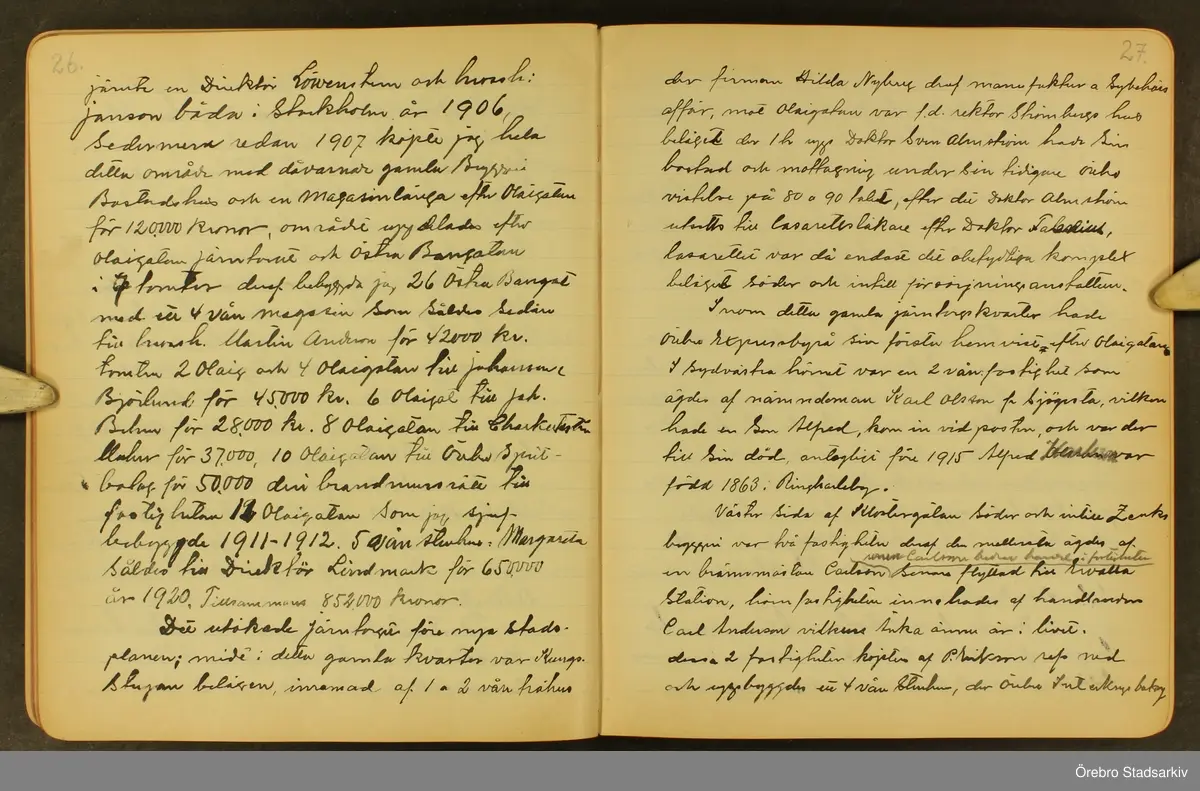 26.
jämte en Direktör Löwenstem och
janson båda i Stockholm år 1906,
Sedermera redan 1907 köpte jag hela
detta område med dåvarande gamla Bryggeri
Bostadshus och en Magasinlänga efter Olaigatan
för 120,000 Kronor, området uppdelades efter
Olaigatan Järntorget och Östra Bangatan
i 7 tomter deraf bebyggda jag 26 Östra Bangat
med ett 4 vån magasin Som Såldes Sedan
till Martin Andrson för 42000 kr.
tomten 2 Olaig och 4 Olaigatan till Johanson,
Björlund för 45,000 kr. 6 Olaigat till Joh.
för 28,000 kr. 8 Olaigatan till
för 37,000, 10 Olaigatan till Örebro Sprit-
bolag för 50,000 din brandmursrätt till
fastigheten 12 Olaigatan Som jag Sjelf
bebyggde 1911-1912. 5 vån stenhus: Margareta
Såldes till Direktör Lindmark för 650,000
år 1920, Tillsammans 852,000 kronor.
Det utökade Järntorget före nya Stads-
planen; midt i detta gamla kvarter var Kungs-
Stugan belägen, inramad af 1 a 2 vån trähus
27.
der firman Hilda Nyberg draf manufaktur o Sybehörs
affär, mot Olaigatan var f.d. rektor Strömbergs hus
beläget der 1 tr upp Doktor Sven Almström hade Sin
bostad och mottagning under Sin tidigare Örebro
vistelse på 80 o 90 talet, efter det Doktor Almström
utsetts till Lasarettsläkare efter Doktor
lasarettet var då endast det obetydliga komplex
beläget Söder och intill försörjningsanstalten.
Inom detta gamla järntorgskvarter hade
Örebro Expressbyrå Sin första hemvist efter Olaigatan
I Sydvästra hörnet var en 2 vån, fastighet Som
ägdes af nämndeman Karl Olsson fr Sjögesta, vilken
hade en Son Alfred, kom in vid posten, och var der
till Sin död, antagligt före 1915 Alfred var
född 1863 i Ringkarleby.
Väster Sida af Klostergatan Söder och intill Zenks
byggeri var två fastigheter deraf den nedersta ägdes af
Carlsson i fastigheten
en Carlson Senare flyttad till
Station, fastigheten innehades af handlanden
Carl Anderson vilkens Änka ännu är i livet.
dessa 2 fastigheter köptes af P. Erikson refs ned
och uppbyggdes ett 4 vån Stenhus, der Örebro bolag
Örebro Stadsarkiv